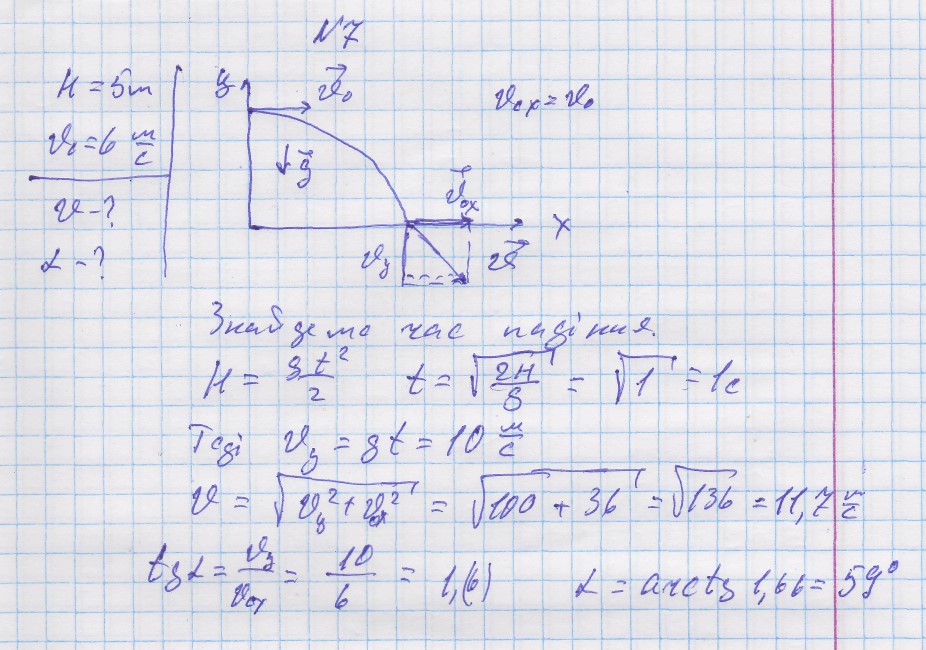 N7
H = 5м
v₀ = 6 м/с
v - ?
α - ?
y
v⃗₀
g⃗
v⃗₀ₓ
x
v_y
v⃗
v₀ₓ = v₀
Знайдемо час падіння.
H = gt²/2 t = √(2H/g) = √1 = 1с
Тоді v_y = gt = 10 м/с
v = √(v_y² + v₀ₓ²) = √(100 + 36) = √136 = 11,7 м/с
tg α = v_y/v₀ₓ = 10/6 = 1,(6) α = arctg 1,66 = 59°